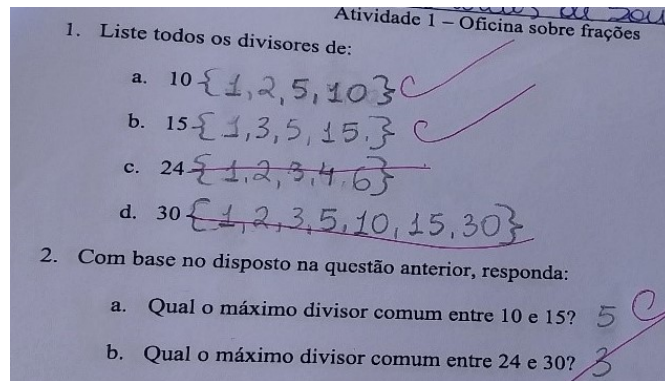 Atividade 1 – Oficina sobre frações
1. Liste todos os divisores de:
a. 10 {1,2,5,10}
b. 15 {1,3,5,15.}
c. 24 {1,2,3,4,6}
d. 30 {1,2,3,5,10,15,30}
2. Com base no disposto na questão anterior, responda:
a. Qual o máximo divisor comum entre 10 e 15? 5
b. Qual o máximo divisor comum entre 24 e 30? 3